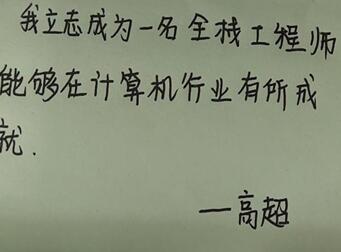 我立志成为一名全栈工程师
能够在计算机行业有所成
就.
—高超